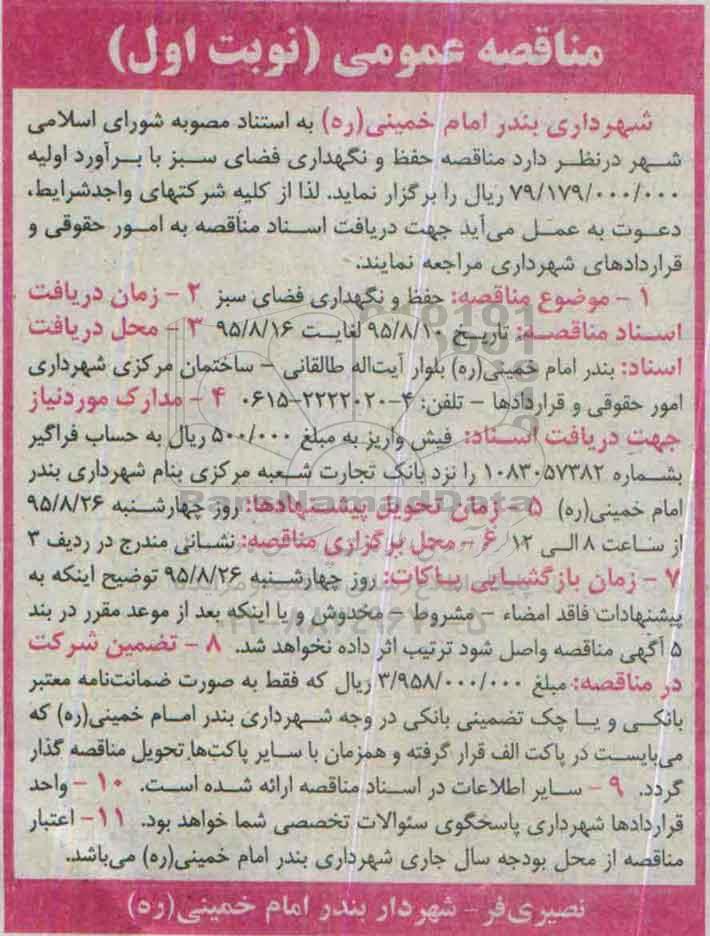 مناقصه عمومی (نوبت اول)
شهرداری بندر امام خمینی(ره) به استناد مصوبه شورای اسلامی
شهر درنظر دارد مناقصه حفظ و نگهداری فضای سبز با برآورد اولیه
۷۹/۱۷۹/۰۰۰/۰۰۰ ریال را برگزار نماید. لذا از کلیه شرکتهای واجدشرایط،
دعوت به عمل می‌آید جهت دریافت اسناد مناقصه به امور حقوقی و
قراردادهای شهرداری مراجعه نمایند.
۱ - موضوع مناقصه: حفظ و نگهداری فضای سبز ۲ - زمان دریافت
اسناد مناقصه: تاریخ ۹۵/۸/۱۰ لغایت ۹۵/۸/۱۶ ۳ - محل دریافت
اسناد: بندر امام خمینی(ره) بلوار آیت‌اله طالقانی - ساختمان مرکزی شهرداری
امور حقوقی و قراردادها - تلفن: ۴-۲۲۲۲۰۲۰-۰۶۱۵ ۴ - مدارک موردنیاز
جهت دریافت اسناد: فیش واریز به مبلغ ۵۰۰/۰۰۰ ریال به حساب فراگیر
بشماره ۱۰۸۳۰۵۷۳۸۲ را نزد بانک تجارت شعبه مرکزی بنام شهرداری بندر
امام خمینی(ره) ۵ - زمان تحویل پیشنهادها: روز چهارشنبه ۹۵/۸/۲۶
از ساعت ۸ الی ۱۲ ۶ - محل برگزاری مناقصه: نشانی مندرج در ردیف ۳
۷ - زمان بازگشایی پاکات: روز چهارشنبه ۹۵/۸/۲۶ توضیح اینکه به
پیشنهادات فاقد امضاء - مشروط - مخدوش و یا اینکه بعد از موعد مقرر در بند
۵ آگهی مناقصه واصل شود ترتیب اثر داده نخواهد شد. ۸ - تضمین شرکت
در مناقصه: مبلغ ۳/۹۵۸/۰۰۰/۰۰۰ ریال که فقط به صورت ضمانت‌نامه معتبر
بانکی و یا چک تضمینی بانکی در وجه شهرداری بندر امام خمینی(ره) که
می‌بایست در پاکت الف قرار گرفته و همزمان با سایر پاکت‌ها تحویل مناقصه گذار
گردد. ۹ - سایر اطلاعات در اسناد مناقصه ارائه شده است. ۱۰ - واحد
قراردادها شهرداری پاسخگوی سئوالات تخصصی شما خواهد بود. ۱۱- اعتبار
مناقصه از محل بودجه سال جاری شهرداری بندر امام خمینی(ره) می‌باشد.
نصیری‌فر - شهردار بندر امام خمینی(ره)
ParsNamadData